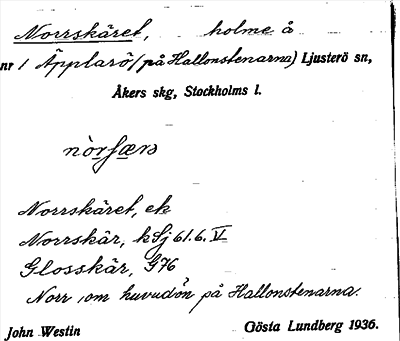 Norrskäret, holme å
nr 1 Äpplarö (på Hallonstenarna) Ljusterö sn,
Åkers skg, Stockholms l.
Norrskäret, ek
Norrskär, kSj 61.6.V
Glosskär, G76
Norr om huvudön på Hallonstenarna.
John Westin Gösta Lundberg 1936.